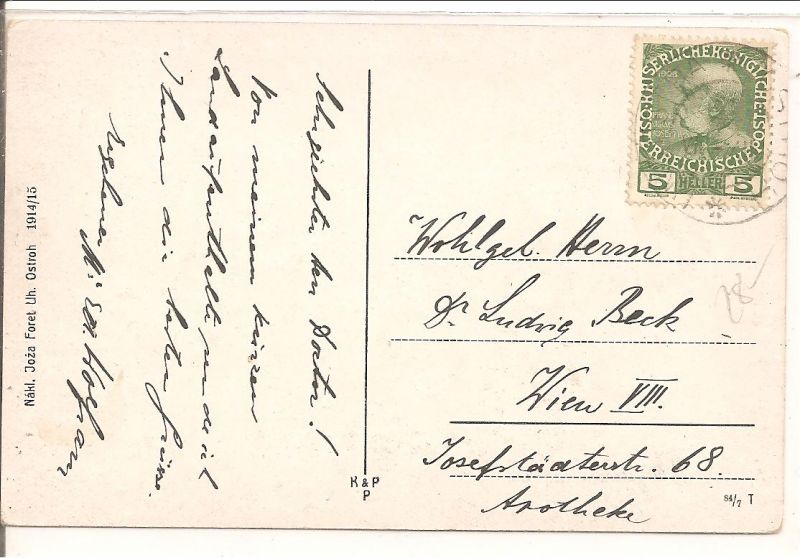 Sehrgeehrter Herr Doctor!
Von meinem kurzen
Landaufenthalte sende ich
Ihnen die besten Grüsse.
Ergebener
Nákl. Joža Foret Uh. Ostroh 1914/15
K & P
P
KAISERLICHEKÖNIGLICHE
ÖSTERREICHISCHE POST
1908
5 HELLER 5
Wohlgeb. Herrn
Dr. Ludwig Beck
Wien VIII.
Josefstädterstr. 68.
Apotheke
28-
84/7 T